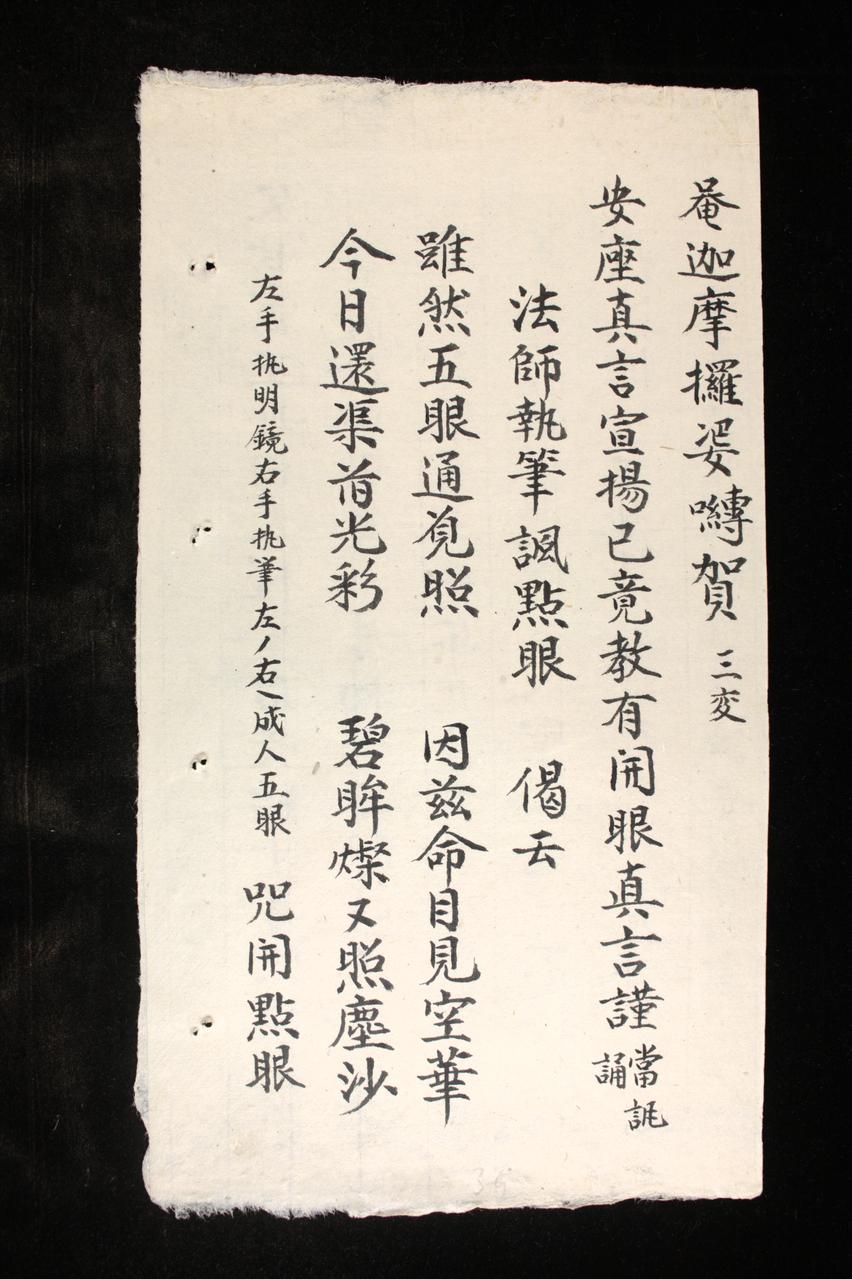 菴迦摩攞娑嚩賀 三変
安座真言宣揚已竟教有開眼真言謹當誦
法師執筆諷點眼 偈云
雖然五眼通見照 因茲命目見空華
今日還渠旹光彩 碧眸燦又照塵沙
左手执明鏡右手执筆左ノ右乀成人五眼 咒開點眼
36